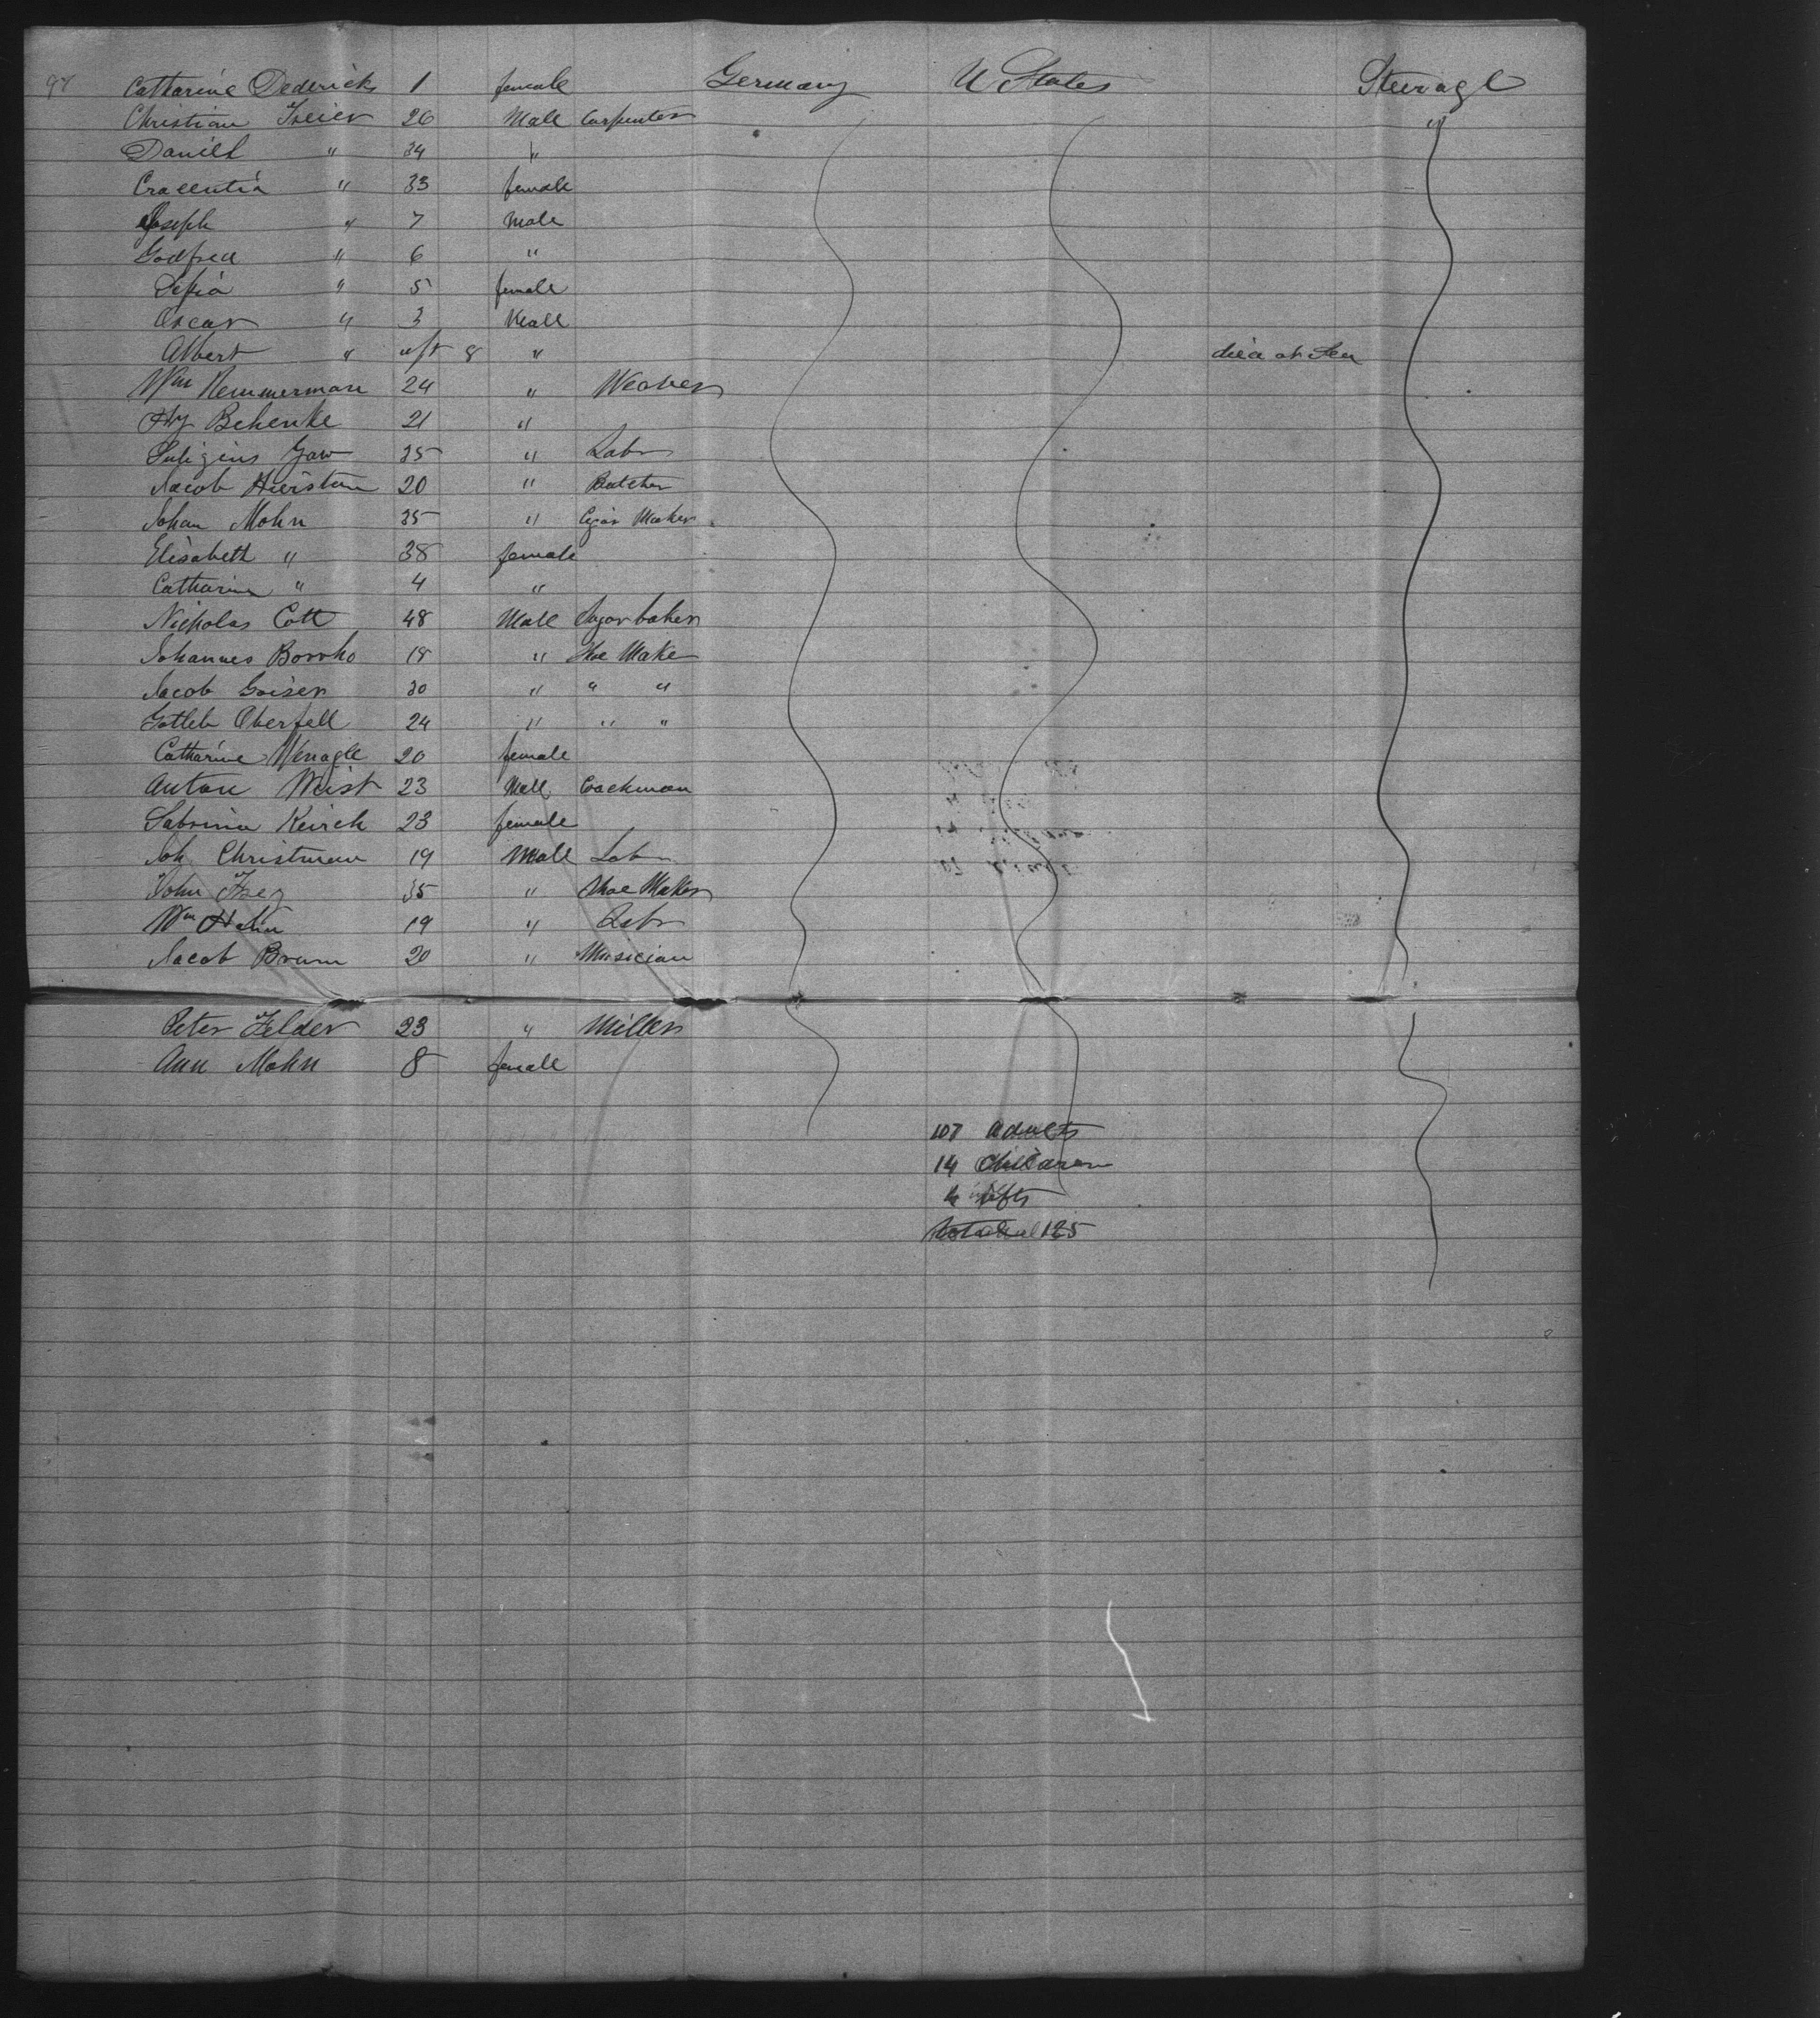 97 Catharine Dederick 1 female Germany U States Steerage
Christian Freier 26 Male Carpenter "
Daniel " 34 "
Cracentia " 33 female
Joseph " 7 Male
Godfred " 6 "
Sofia " 5 female
Oscar " 3 Male
Albert " uft 8 " died at Sea
Wm Hemmerman 24 " Weaver
Hy Behenke 21 "
Gaw 35 " Labr
Jacob 20 " Butcher
Johan Mohn 35 " Cigar Maker
Elisabeth " 38 female
Catharine " 4 "
Nicholas Cott 48 Male Sugar baker
Johannes Borrho 18 " Shoe Make
Jacob Goiser 30 " " "
Gotleb Oberfell 24 " " "
Catharine Wenagle 20 female
Anton Wrist 23 Male Coachman
Sabrina Keirch 23 female
Joh Christman 19 Male Labr
John Frey 35 " Shoe Maker
Wm Hahn 19 " Labr
Jacob Brum 20 " Musician
Peter Felder 23 " Miller
Ann Mohn 8 female
107 Adults
14 Children
4 infts
125